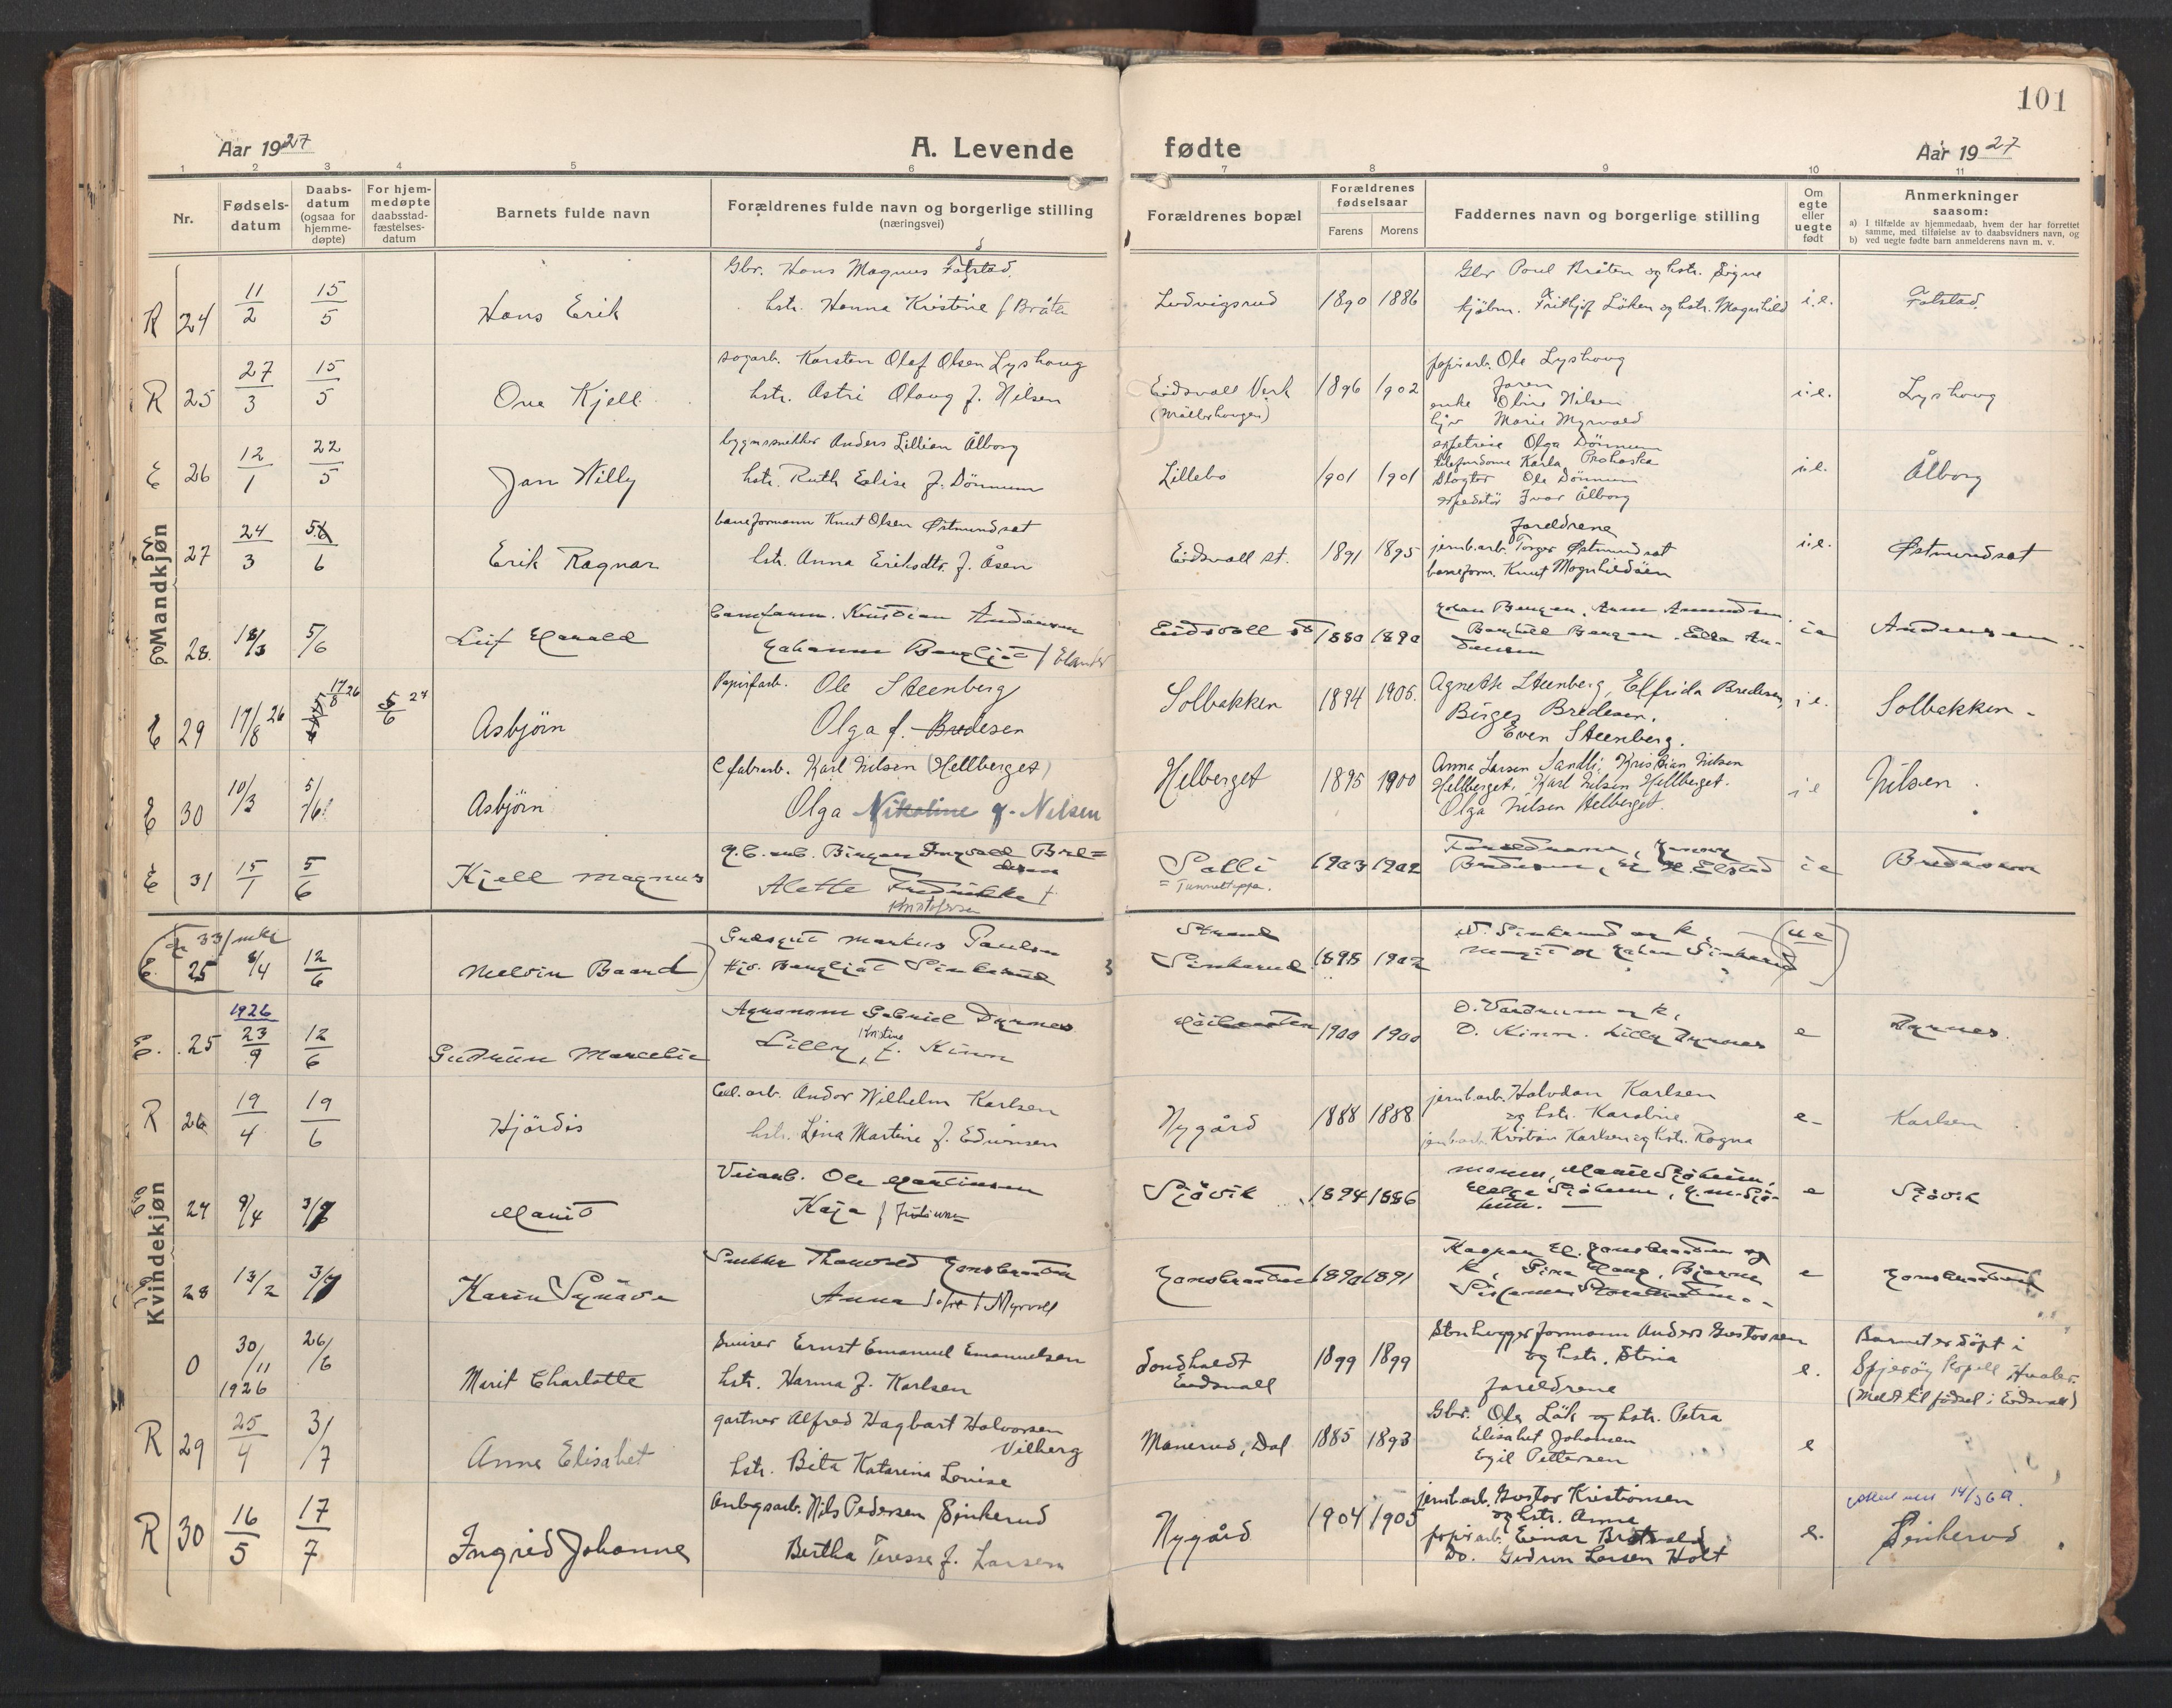 101
Aar 1927
A. Levende
fødte
Aar 1927
1 2 3 4 5 6 7 8 9 10 11
Nr.
Fødsels-
datum
Daabs-
datum
(ogsaa for
hjemme-
døpte)
For hjem-
medøpte
daabsstad-
fæstelses-
datum
Barnets fulde navn
Forældrenes fulde navn og borgerlige stilling
(næringsvei)
Forældrenes bopæl
Forældrenes
fødselsaar
Farens Morens
Faddernes navn og borgerlige stilling
Om
egte
eller
uegte
født
Anmerkninger
saasom:
a) I tilfælde av hjemmedaab, hvem der har forrettet
samme, med tilføielse av to daabsvidners navn, og
b) ved uegte fødte barn anmelderens navn m. v.
Mandkjøn
R 24 11/2 15/5
Hans Erik
Gbr. Hans Magnus Falstad.
hstr. Hanna Kristine f Bråte
Ludvigsrud 1890 1886
Gbr Poul Bråten og hstr. Signe
kjøbm. Frithjof Löken og hstr. Magnhild
i.e.
Falstad.
R 25 27/3 15/5
Ove Kjell
sagarb. Karsten Olaf Olsen Lyshaug
hstr. Astri Olaug f. Nilsen
Eidsvall Verk
(Møllerhaugen)
1896 1902
papirarb. Ole Lyshoug
faren
enke Oline Nilsen
Marie Myrvold
i.e.
Lyshoug
E 26 12/1 22/5
Jan Willy
bygnssnekker Anders Lillian Ålborg
hstr. Ruth Elise f. Dönnum
Lillebo 1901 1901
Olga Dönnum
telefondame Karla Prohaska
Slagter Ole Dönnum
expeditör Ivar Ålborg
i.e.
Ålborg
E 27 24/3 5/6
Erik Ragnar
baneformann Knut Olsen Østmundset
hstr. Anna Eriksdtr. f. Åsen
Eidsvall st. 1891 1895
foreldrene
jernb.arb. Torger Østmundset
baneform. Knut Magnhildöen
i.e.
Østmundset
E 28 18/3 5/6
Leif Harald
Kristian Andersen
Johanne Bergljot f Elander
Eidsvoll st 1880 1890
i e
Andersen
E 29 17/8 26 17/8 26 5/6 27
Asbjörn
Papirfarb. Ole Steenberg
Olga f. Bredesen
Solbakken 1894 1905.
Agnethe Steenberg, Elfrida Bredesen,
Birger Bredesen,
Even Steenberg.
i e.
Solbakken
E 30 10/3 5/6
Asbjörn
Karl Nilsen (Hellberget)
Olga Nikoline f. Nilsen
Helberget 1895 1900
Anna Larsen Sandli, Kristian Nilsen
Hellberget, Karl Nilsen Hellberget.
Olga Nilsen Helberget.
i e
Nilsen
E 31 15/1 5/6
Kjell Magnus
Birger Ingvald Bre=
desen
Alette Fredrikke f
Kristofersen
Salli
= Tunnettoppa.
1903 1902
Foreldrene,
i e
Bredesen
Kvindekjøn
E. 25 8/4 12/6
Melvin Baard
Markus Paulsen
Bergljot Sinkerud
Strand
Sinkerud 1898 1902
N. Sinkerud og k,
Margit og Johan Sinkerud
(u e)
E. 25 1926 23/9 12/6
Gudrun Marcelie
Agronom Gabriel Dyrnes
Lilly Kristine f. Kinn
1900 1900
O. Vardrum og k,
O. Kinn. Lilly Dyrnes
e
Dyrnes.
R 26 19/4 19/6
Hjördis
Cel.arb. Andor Wilhelm Karlsen
hstr. Lina Martine f. Edvinsen
Nygård 1888 1888
jernb.arb. Halvdan Karlsen
og hstr. Karoline
jernb.arb. Kristian Karlsen og hstr. Ragna
e
Karlsen
E 27 9/4 3/7
Marit
Veiarb. Ole Martinsen
Kaja f
Sjåvik 1894 1886
e
Sjåvik
E 28 13/2 3/7
Karin Synöve
Snekker Thorvald Jonsbraaten
Anna Sofie f Myrvold
Jonsbraaten 1890 1891
e
Jonsbraaten
0 30/11 1926 26/6
Marit Charlotte
Ernst Emanuel Emanuelsen
hstr. Hanna f. Karlsen
Sandholdt
Eidsvall
1899 1899
Stenhugger formann Anders Gustavsen
og hstr. Stina
foreldrene
e.
Barnet er döpt i
Spjerøy kapell, Hvaler.
(Meldt til födsel i Eidsvall)
R 29 25/4 3/7
Anne Elisabet
gartner Alfred Hagbart Halvorsen
Vilberg
hstr. Bita Katarina Lovise
Manerud, Dal 1885 1893
Gbr. Ole Läk og hstr. Petra
Elisabet Johansen
Egil Pettersen
e
R 30 16/5 17/7
Ingrid Johanne
Anlegsarb. Nils Pedersen Sinkerud
Bertha Teresse f. Larsen
Nygård 1904 1905
jernb.arb. Gustav Kristiansen
og hstr. Anna
papirarb. Einar Bråtvold
Do. Gudrun Larsen Holt
e.
Sinkerud